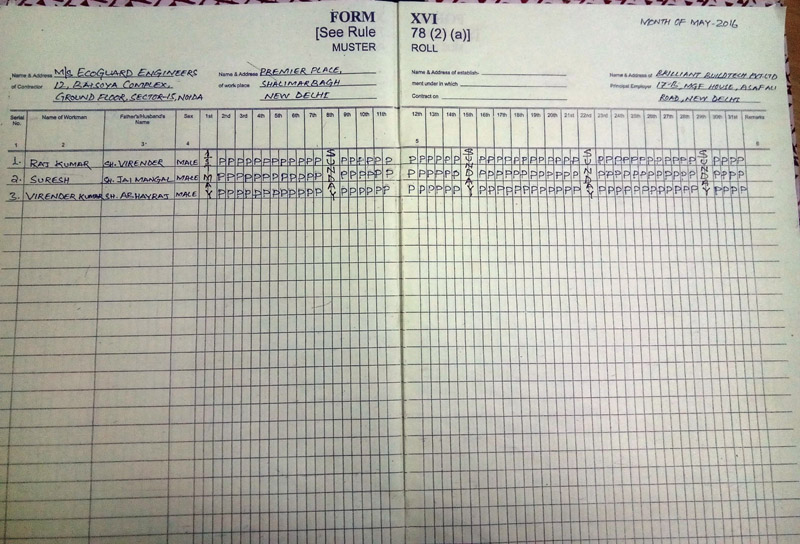 FORM XVI
[See Rule 78 (2) (a)]
MUSTER ROLL
MONTH OF MAY-2016
Name & Address of Contractor M/s ECOGUARD ENGINEERS
12, BAISOYA COMPLEX,
GROUND FLOOR, SECTOR-15, NOIDA
Name & Address of work place PREMIER PLACE,
SHALIMARBAGH
NEW DELHI
Name & Address of establish-
ment under in which
Contract on
Name & Address of Principal Employer BRILLIANT BUILDTECH PVT LTD
17-B, MGF HOUSE, ASAF ALI
ROAD, NEW DELHI
Serial No. Name of Workman Father's/Husband's Name Sex 1st 2nd 3rd 4th 5th 6th 7th 8th 9th 10th 11th 12th 13th 14th 15th 16th 17th 18th 19th 20th 21st 22nd 23rd 24th 25th 26th 27th 28th 29th 30th 31st Remarks
1 2 3 4 5 6
1. RAJ KUMAR SH. VIRENDER MALE P P P P P P P P P P P P P P P P P P P P P P P P P P P P P P
2. SURESH SH. JAI MANGAL MALE P P P P P P P P P P P P P P P P P P P P P P P P P P P P P P
3. VIRENDER KUMAR SH. ABHAYRAJ MALE P P P P P P P P P P P P P P P P P P P P P P P P P P P P P P
SUNDAY
SUNDAY
SUNDAY
SUNDAY